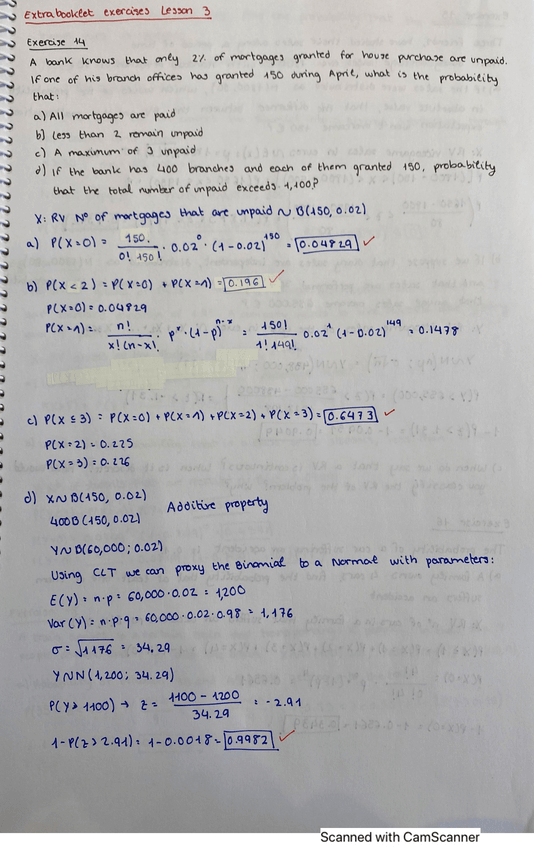 Extrabooklet exercises Lesson 3
Exercise 14
A bank knows that only 2% of mortgages granted for house purchase are unpaid.
If one of his branch offices has granted 150 during April, what is the probability
that:
a) All mortgages are paid
b) Less than 2 remain unpaid
c) A maximum of 3 unpaid
d) If the bank has 400 branches and each of them granted 150, probability
that the total number of unpaid exceeds 1,100?
X: RV Nº of mortgages that are unpaid ~ B(150, 0.02)
a) P(X=0) = 150! / 0! 150! · 0.02⁰ · (1-0.02)¹⁵⁰ = 0.04829 ✓
b) P(X < 2) = P(X=0) + P(X=1) = 0.196 ✓
P(X=0) = 0.04829
P(X=1) = n! / x!(n-x)! · pˣ · (1-p)ⁿ⁻ˣ = 150! / 1! 149! 0.02¹ (1-0.02)¹⁴⁹ = 0.1478
c) P(X ≤ 3) = P(X=0) + P(X=1) + P(X=2) + P(X=3) = 0.6473 ✓
P(X=2) = 0.225
P(X=3) = 0.226
d) X~B(150, 0.02) Additive property
400B(150, 0.02)
Y~B(60,000; 0.02)
Using CLT we can proxy the Binomial to a Normal with parameters:
E(Y) = n·p = 60,000·0.02 = 1,200
Var(Y) = n·p·q = 60,000·0.02·0.98 = 1,176
σ = √1176 = 34.29
Y~N(1,200; 34.29)
P(Y > 1100) → z = 1100 - 1200 / 34.29 = -2.91
1-P(z > 2.91) = 1-0.0018 = 0.9982 ✓
Scanned with CamScanner